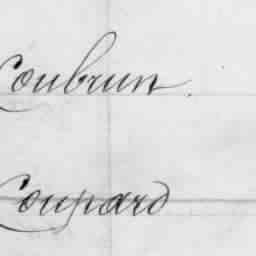 Coubrun.
Coupard